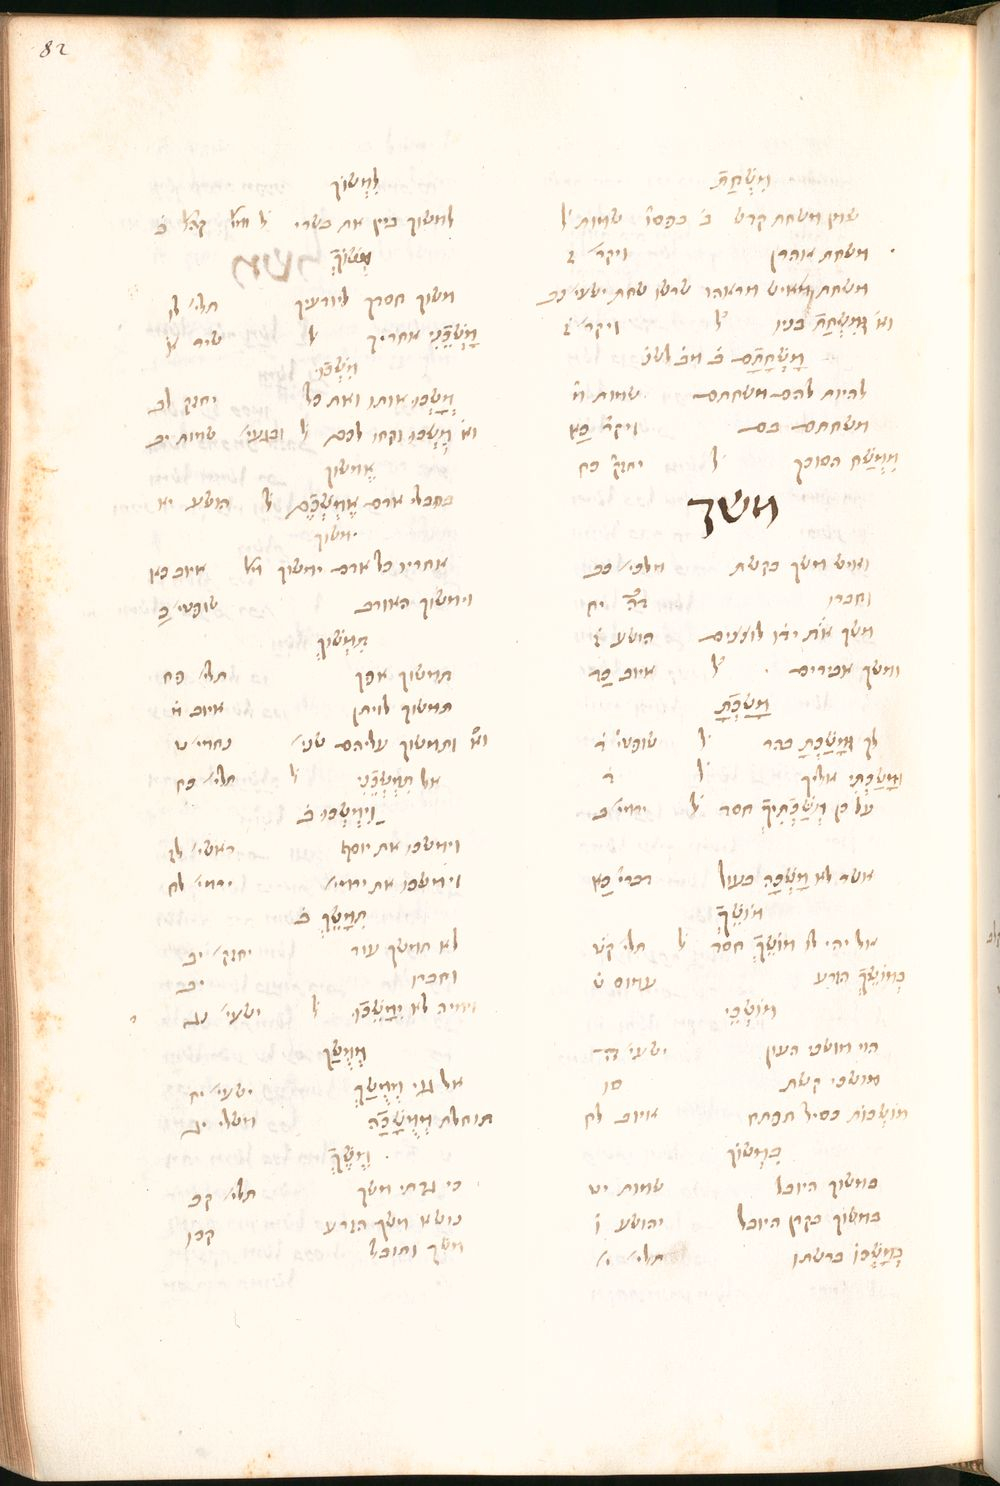 82
מִשְׁחַת
שמן משחת קדש ב׳ בפסו׳ שמות ל׳
משחת אהרן ויקר׳ ז
משחת מאיש מראהו שרשו שחת ישעי׳ נב
ומִשְׁחַת בניו ל׳ ויקר׳ ז׳
מָשְׁחָתָם ב׳
להיות להם משחתם שמות מ׳
משחתם בם ויקר׳ כא
מִמְשַׁח הסוכך ל׳ יחזק׳ כח
משך
ואיש משך בקשת מלכי׳ כב
וחברו דה׳ יח
משך את ידו לוצצים הושע ז׳
ומשך אבירים ל׳ איוב כד
מָשַׁכְתָּ
לך ומָשַׁכְתָּ בהר ל׳ שופטי׳ ד׳
ומָשַׁכְתִּי אליך ל׳ ד׳
על כן מְשַׁכְתִּיךְ חסד ל׳ ירמי׳ ב
אשר לא מָשְׁכָה בעול דברי׳ כא
מוֹשֵׁךְ
אל יהי לו מוֹשֵׁךְ חסד ל׳ תלי׳ קט
בְּמוֹשֵׁךְ הזרע עמוס ט׳
מוֹשְׁכֵי
הוי מושכי העון ישעי׳ ה׳
מושכי קשת סו
מוֹשְׁכוֹת כסיל תפתח איוב לח
בִּמְשׁוֹךְ
במשוך היובל שמות יט
במשוך בקרן היובל יהושע ו׳
בְּמָשְׁכוֹ ברשתו תלי׳ י׳
לִמְשׁוֹךְ
למשוך ביין את בשרי ל׳ קהל׳ ב׳
מְשׁוֹךְ
משוך חסדך ליודעיך תלי׳ לו
מָשְׁכֵנִי אחריך ל׳ שיר א׳
מִשְׁכוּ
מָשְׁכוּ אותו ואת כל יחזק׳ לב
וא׳ מִשְׁכוּ וקחו לכם ל׳ שמות יב
אֶמְשׁוֹךְ
בחבלי אדם אֶמְשְׁכֵם ל׳ הושע יא
ימשוך
ואחריו כל אדם ימשוך איוב כא
וימשוך האורב שופטי׳ כ
תִמְשׁוֹךְ
תמשוך אפך תלי׳ פה
תמשוך לויתן איוב מ׳
וא׳ ותמשוך עליהם שני׳ נחמי׳ ט
אל תִמְשְׁכֵנִי ל׳ תלי׳ כח
וַיִמְשְׁכוּ ב׳
וימשכו את יוסף ראשי׳ לז
וימשכו את ירמי׳ ירמי׳ לח
תִמָשֵׁךְ ב׳
לא תמשך עוד יחזק׳ יב
וחברו יב
וימיה לא יִמָשֵׁכוּ ל׳ ישעי׳ יג
מְמֻשַׁךְ
אל גוי מְמֻשַׁךְ ישעי׳ יח
תוחלת מְמֻשָׁכָה משלי יג
מֶשֶׁךְ
כי גרתי משך תלי׳ קכ
נושא משך הזרע קכו
משך ותובל